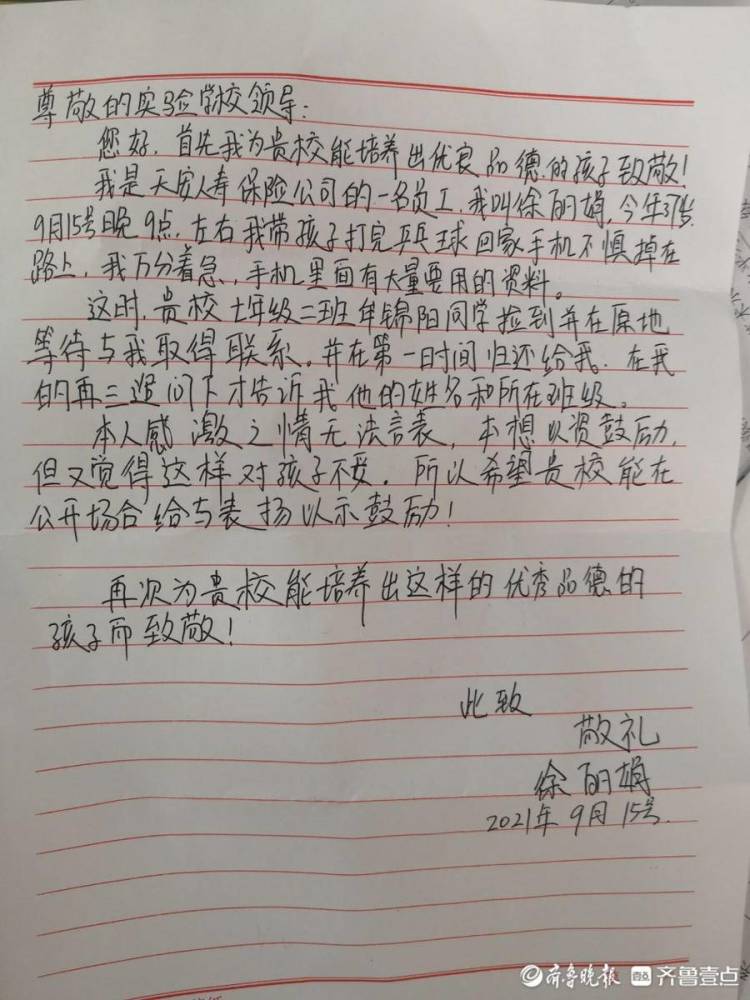 尊敬的实验学校领导：
您好，首先我为贵校能培养出优良品德的孩子致敬！
我是天安人寿保险公司的一名员工，我叫徐丽娟，今年37岁，
9月15号晚9点，左右我带孩子打完乒乓球回家手机不慎掉在
路上，我万分着急，手机里面有大量要用的资料。
这时，贵校七年级二班年锦阳同学捡到并在原地
等待与我取得联系。并在第一时间归还给我．在我
的再三追问下才告诉我他的姓名和所在班级。
本人感激之情无法言表，本想以资鼓励，
但又觉得这样对孩子不妥．所以希望贵校能在
公开场合给与表扬以示鼓励！
再次为贵校能培养出这样的优秀品德的
孩子而致敬！
此致
敬礼
徐丽娟
2021年9月15号．
齐鲁晚报 齐鲁壹点